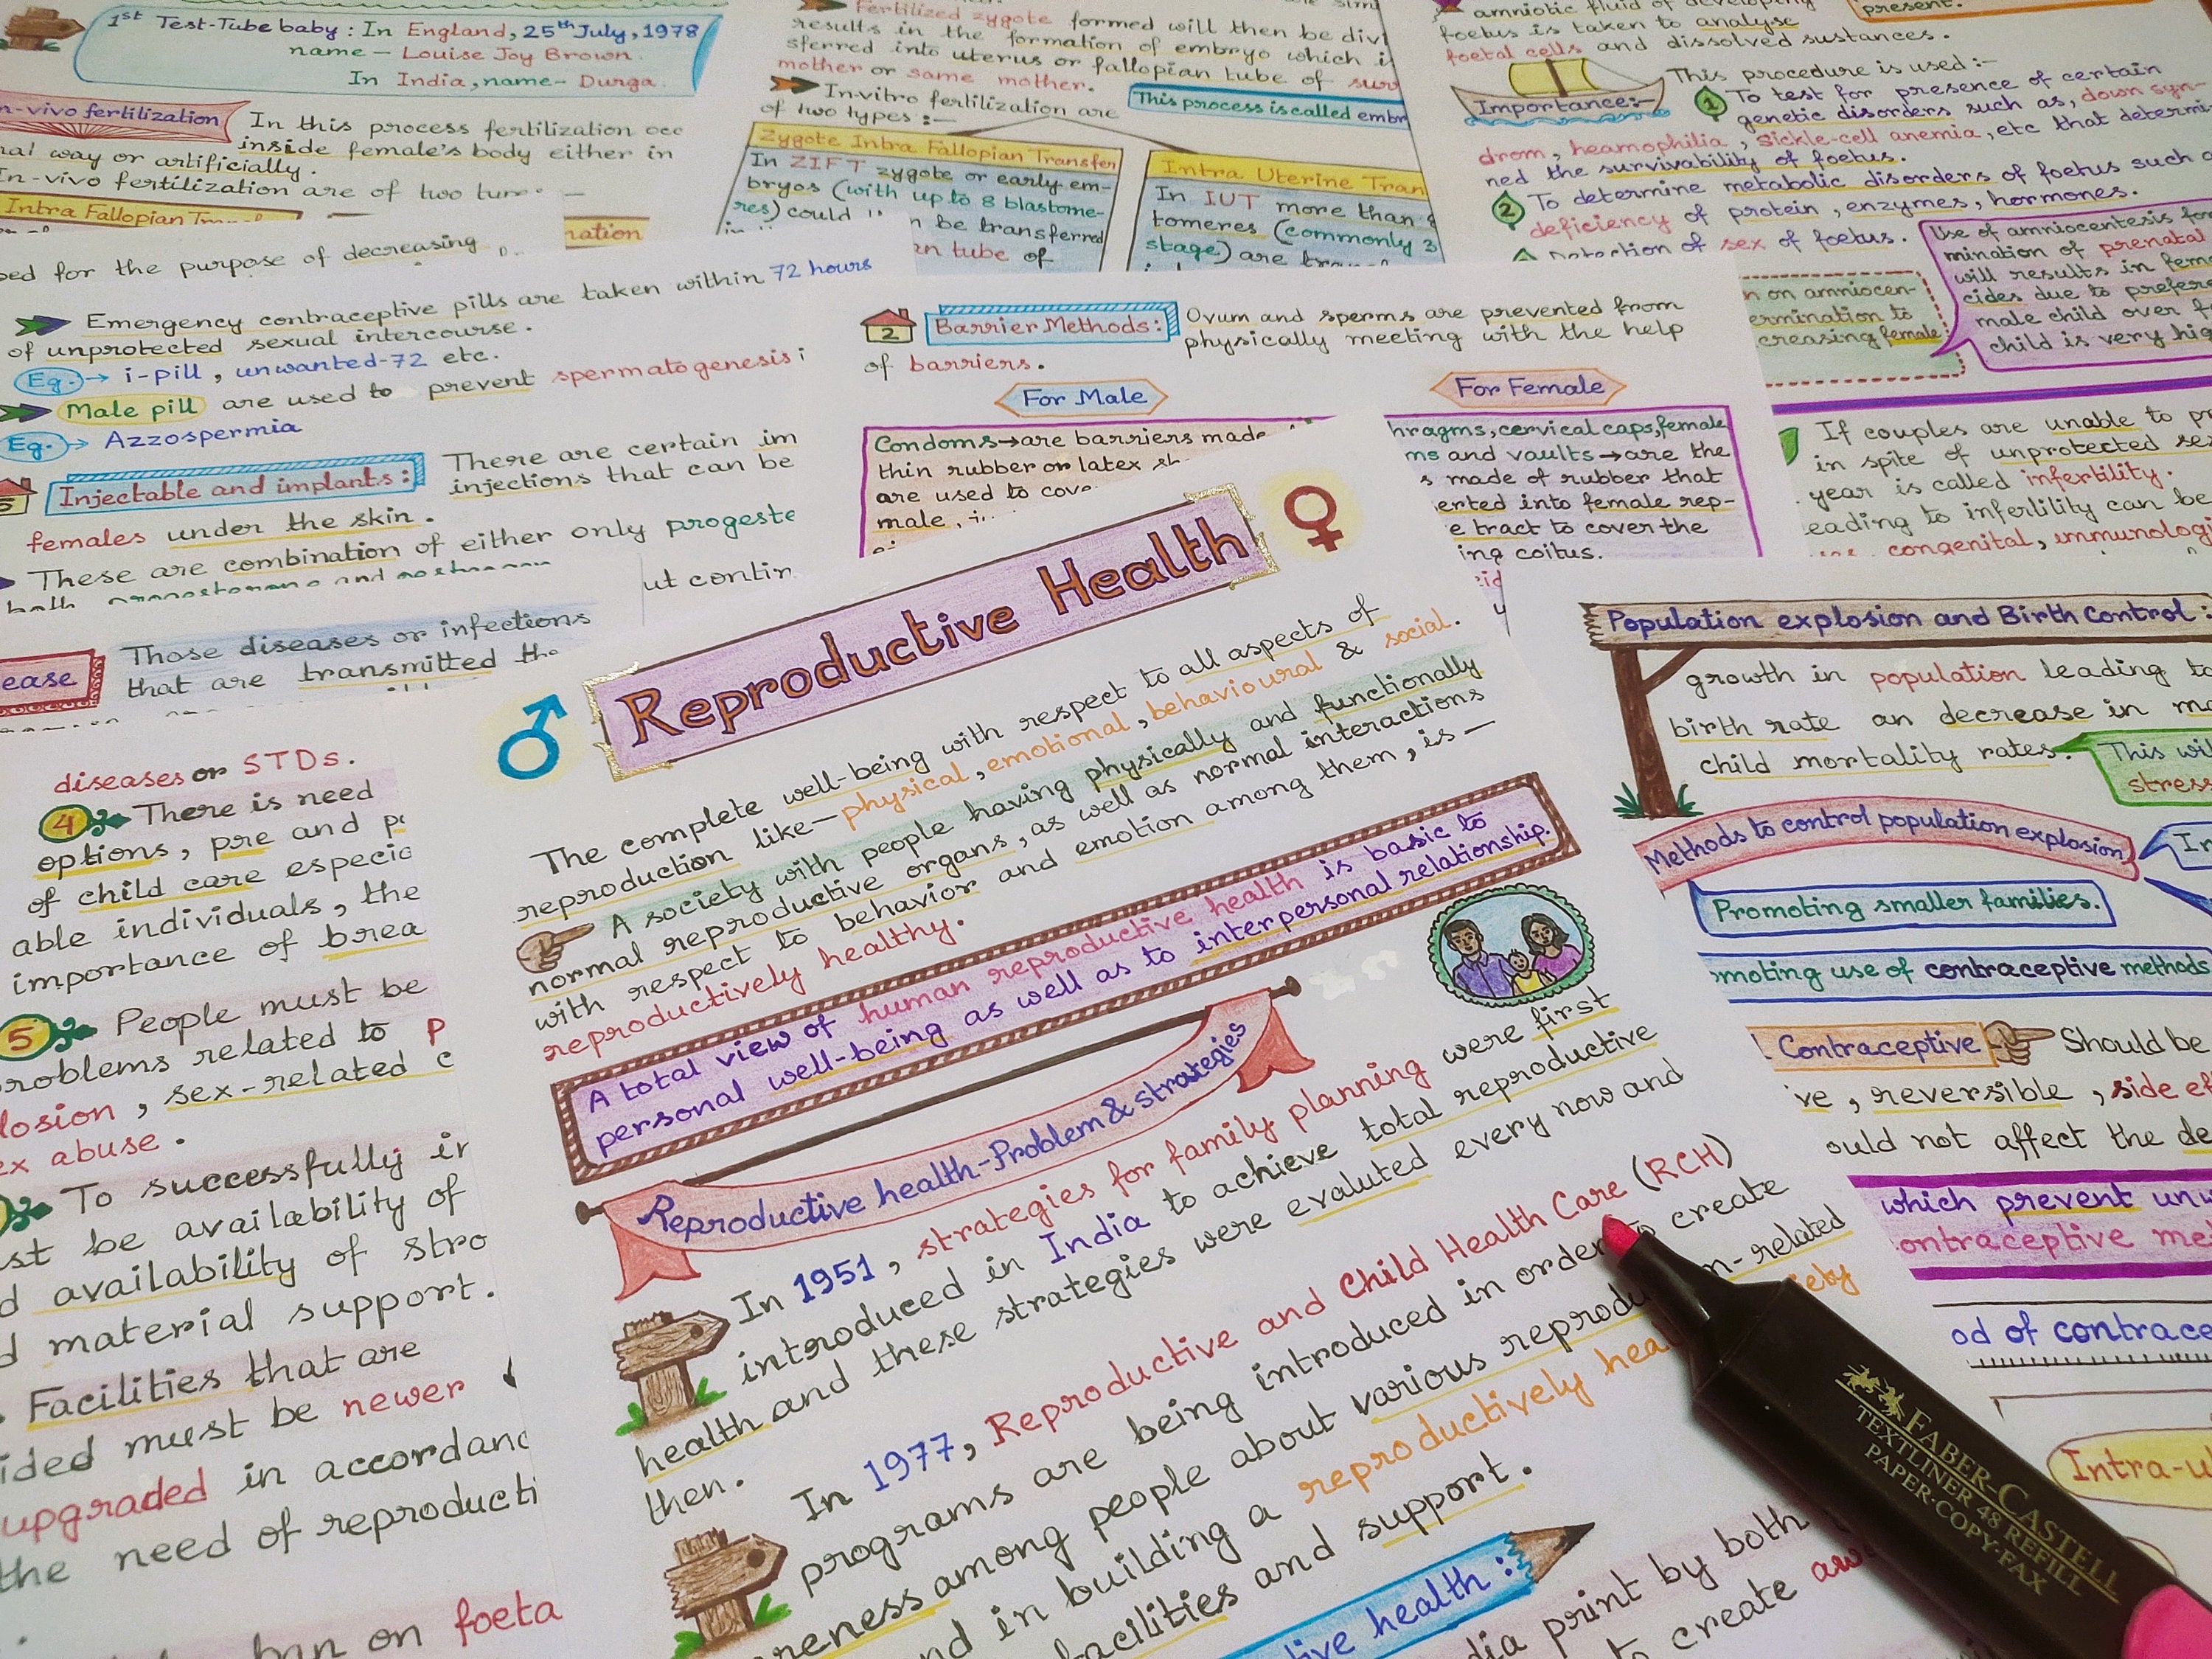 1st Test-Tube baby : In England, 25th July, 1978
name – Louise Joy Brown.
In India, name – Durga.
n-vivo fertilization
In this process fertilization occ
inside female's body either in
ral way or artificially.
In-vivo fertilization are of two
Intra Fallopian
nation
Fertilized zygote formed will then be divi
results in the formation of embryo which i
sferred into uterus or fallopian tube of sur
mother or same mother.
This process is called embr
In-vitro fertilization are
of two types :—
Zygote Intra Fallopian Transfer
In ZIFT zygote or early em-
bryos (with up to 8 blastome-
res) could
be transferred
an tube of
Intra Uterine Tran
In IUT more than 8
tomeres (commonly 3
stage) are
amniotic fluid of developing
foetus is taken to analyse
foetal cells and dissolved sustances.
present.
Importance:-
This procedure is used :-
1 To test for presence of certain
genetic disorders such as, down syn-
drom, heamophilia, sickle-cell anemia, etc that determi
ned the survivability of foetus.
2 To determine metabolic disorders of foetus such a
deficiency of protein, enzymes, hormones.
Detection of sex of foetus.
Use of amniocentesis for
mination of prenatal
will results in fema
cides due to prefere
male child over f
child is very hig
n on amniocen-
ermination to
creasing female
If couples are unable to pr
in spite of unprotected sex
year is called infertility.
eading to infertility can be
congenital, immunologi
ped for the purpose of decreasing
Emergency contraceptive pills are taken within 72 hours
of unprotected sexual intercourse.
Eg. → i-pill, unwanted-72 etc.
Male pill are used to prevent spermatogenesis i
Eg. → Azzospermia
5 Injectable and implants :
There are certain im
injections that can be
females under the skin.
These are combination of either only progeste
both
ut contin
2 Barrier Methods:
Ovum and sperms are prevented from
physically meeting with the help
of barriers.
For Male
For Female
Condoms→are barriers made
thin rubber or latex sh
are used to cove
male,
hragms, cervical caps, female
ms and vaults→are the
s made of rubber that
erted into female rep-
e tract to cover the
ing coitus.
ease
Those diseases or infections
that are transmitted
diseases or STDs.
4 There is need
options, pre and p
of child care especia
able individuals, the
importance of brea
5 People must be
roblems related to p
losion, sex-related c
ex abuse.
To successfully
st be availability of
d availability of stro
d material support.
Facilities that are
ided must be newer
upgraded in accordanc
the need of reproducti
ban on foeta
Reproductive Health
The complete well-being with respect to all aspects of
reproduction like–physical, emotional, behavioural & social.
A society with people having physically and functionally
normal reproductive organs, as well as normal interactions
with respect to behavior and emotion among them, is —
reproductively healthy.
A total view of human reproductive health is basic to
personal well-being as well as to interpersonal relationship.
Reproductive health-Problem & strategies
In 1951, strategies for family planning were first
introduced in India to achieve total reproductive
health and these strategies were evaluted every now and
then.
In 1977, Reproductive and Child Health Care (RCH)
programs are being introduced in order to create
reness among people about various reprodu n-related
nd in building a reproductively hea iety
facilities and support.
tive health :
dia print by both
to create
Population explosion and Birth Control :
growth in population leading to
birth rate an decrease in
child mortality rates.
This wi
stress
Methods to control population explosion
In
Promoting smaller families.
omoting use of contraceptive methods
l Contraceptive
Should be
ve, reversible, side ef
ould not affect the de
which prevent unw
ontraceptive me
od of contrace
Intra-u
FABER-CASTELL
TEXTLINER 48 REFILL
PAPER·COPY·FAX